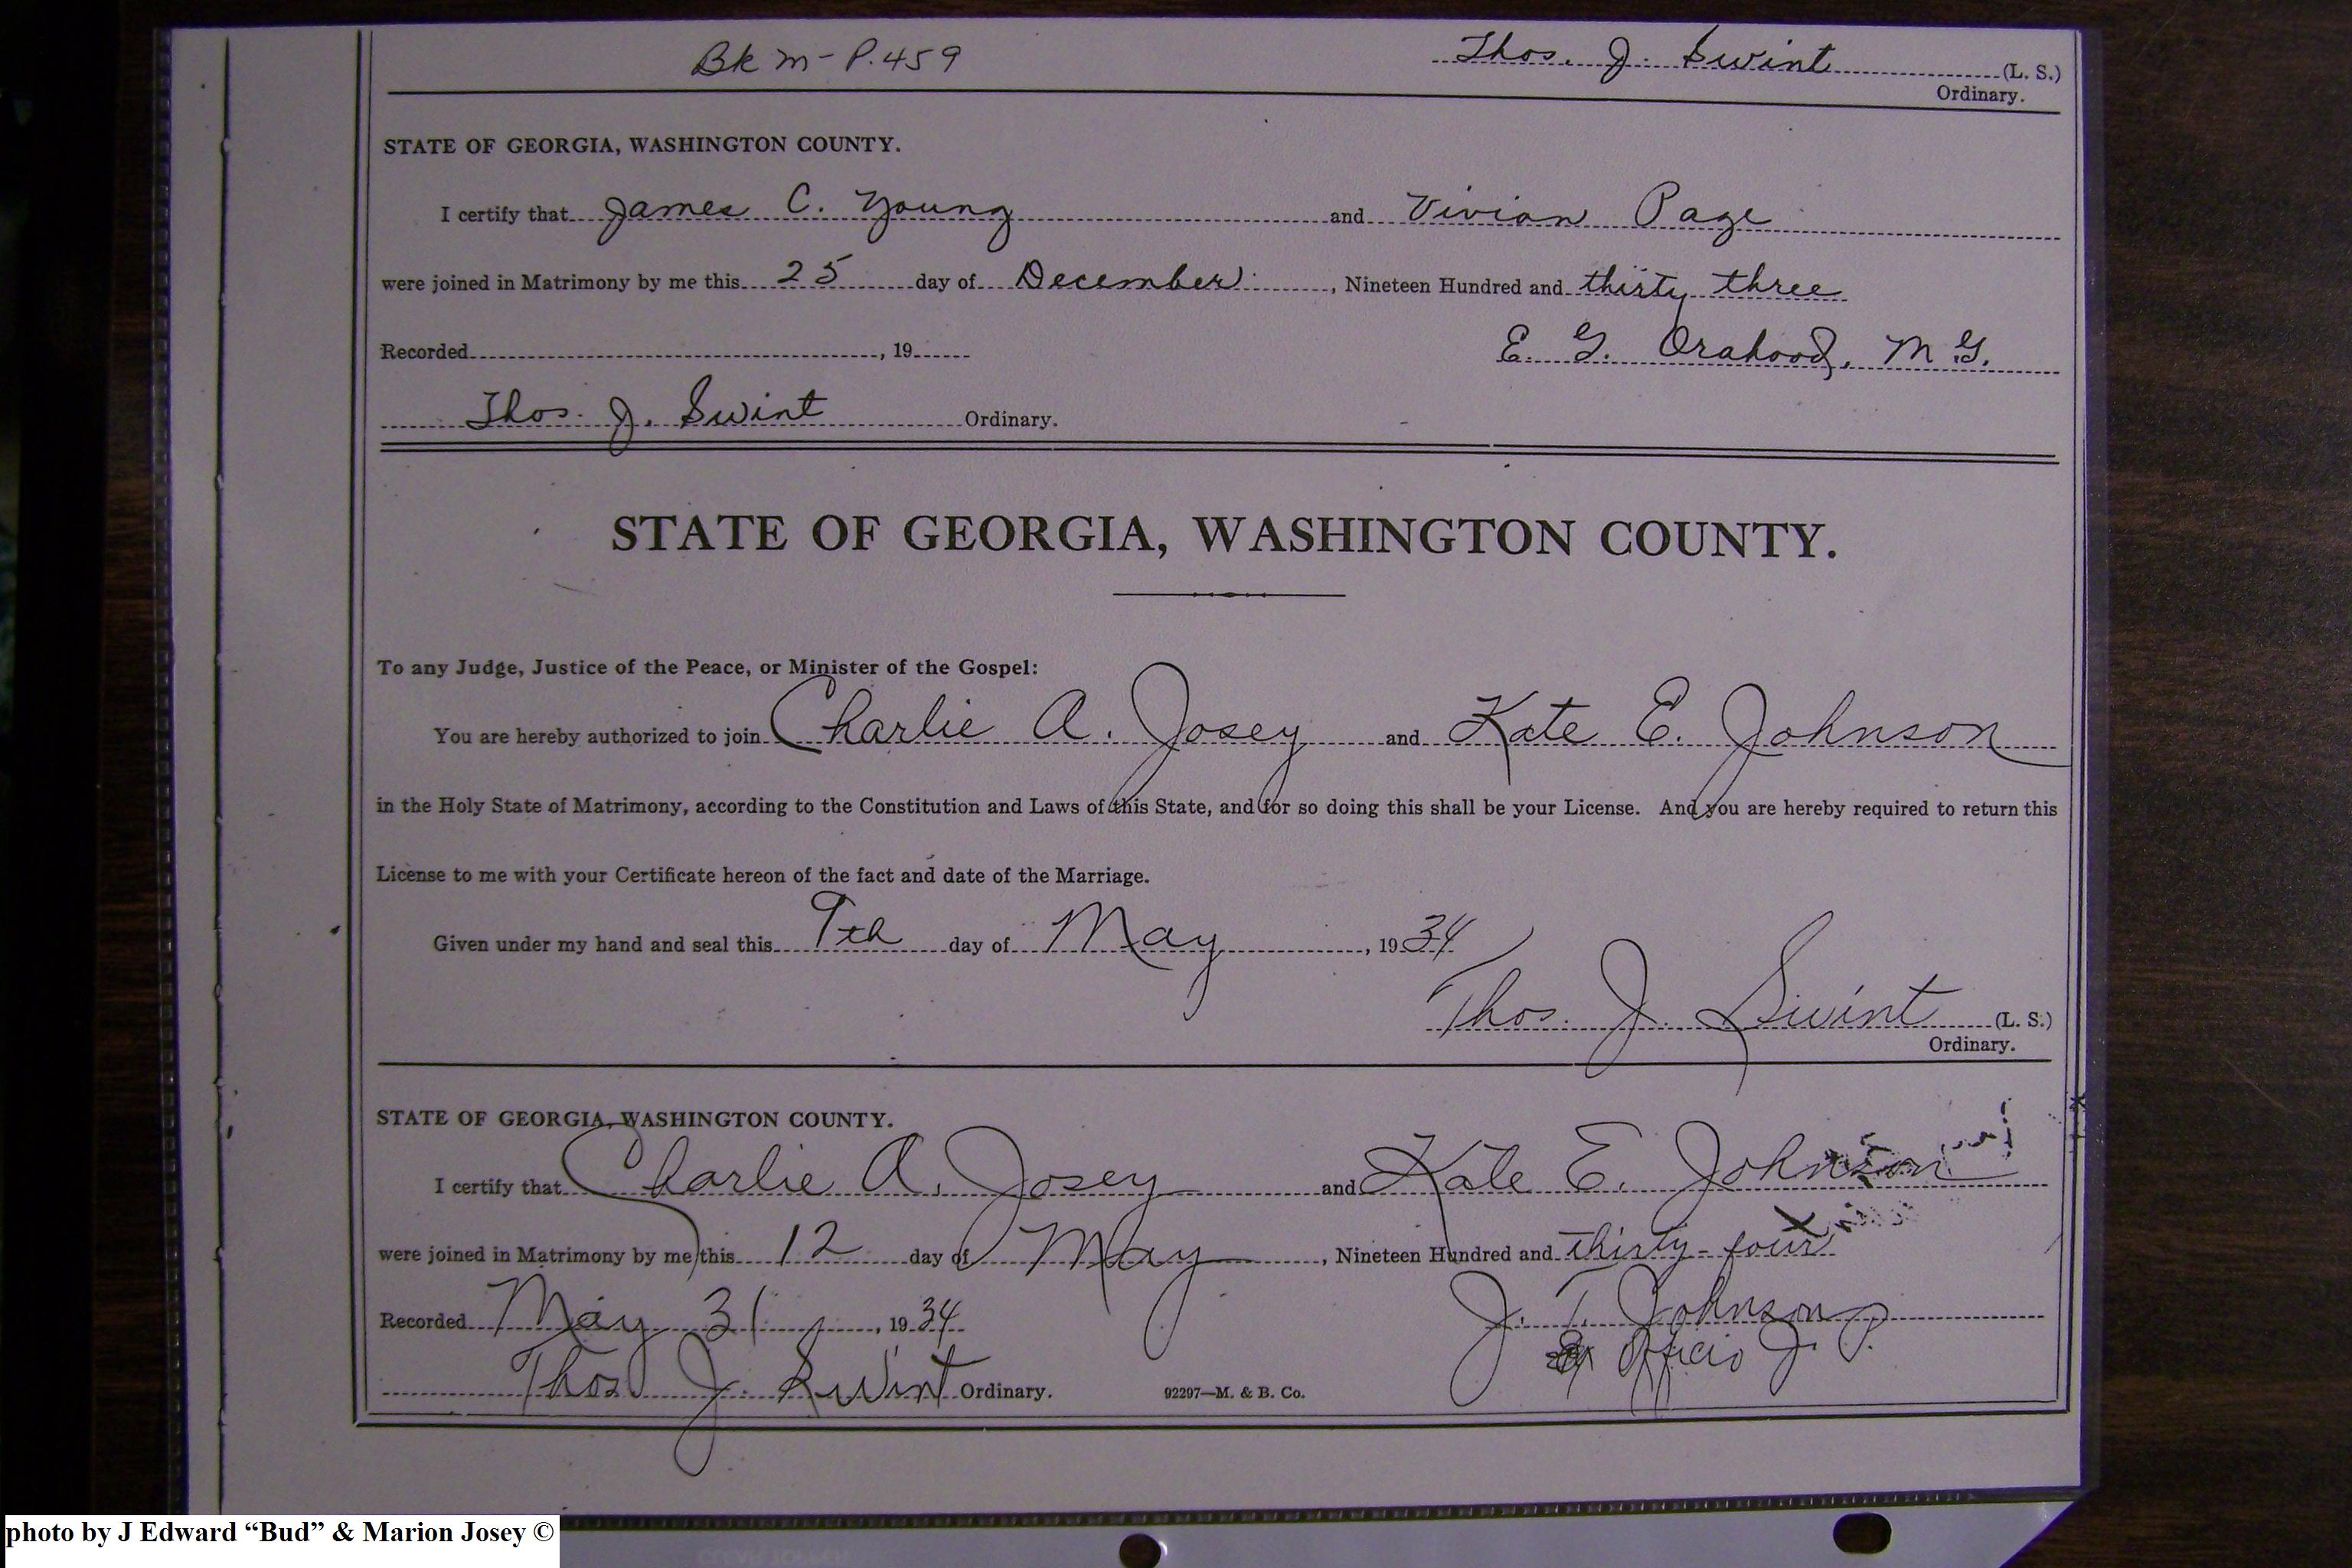 Bk M - P. 459 Thos. J. Swint (L. S.)
Ordinary.
STATE OF GEORGIA, WASHINGTON COUNTY.
I certify that James C. Young and Vivian Page
were joined in Matrimony by me this 25 day of December, Nineteen Hundred and thirty three
Recorded , 19 E. G. Orahood, M G.
Thos. J. Swint Ordinary.
STATE OF GEORGIA, WASHINGTON COUNTY.
To any Judge, Justice of the Peace, or Minister of the Gospel:
You are hereby authorized to join Charlie A. Josey and Kate E. Johnson
in the Holy State of Matrimony, according to the Constitution and Laws of this State, and for so doing this shall be your License. And you are hereby required to return this
License to me with your Certificate hereon of the fact and date of the Marriage.
Given under my hand and seal this 9th day of May, 1934
Thos. J. Swint (L. S.)
Ordinary.
STATE OF GEORGIA, WASHINGTON COUNTY.
I certify that Charlie A. Josey and Kate E. Johnson
were joined in Matrimony by me this 12 day of May, Nineteen Hundred and thirty-four
Recorded May 31, 1934 J. T. Johnson
Ex Officio J. P.
Thos J. Swint Ordinary. 92297—M. & B. Co.
photo by J Edward “Bud” & Marion Josey ©